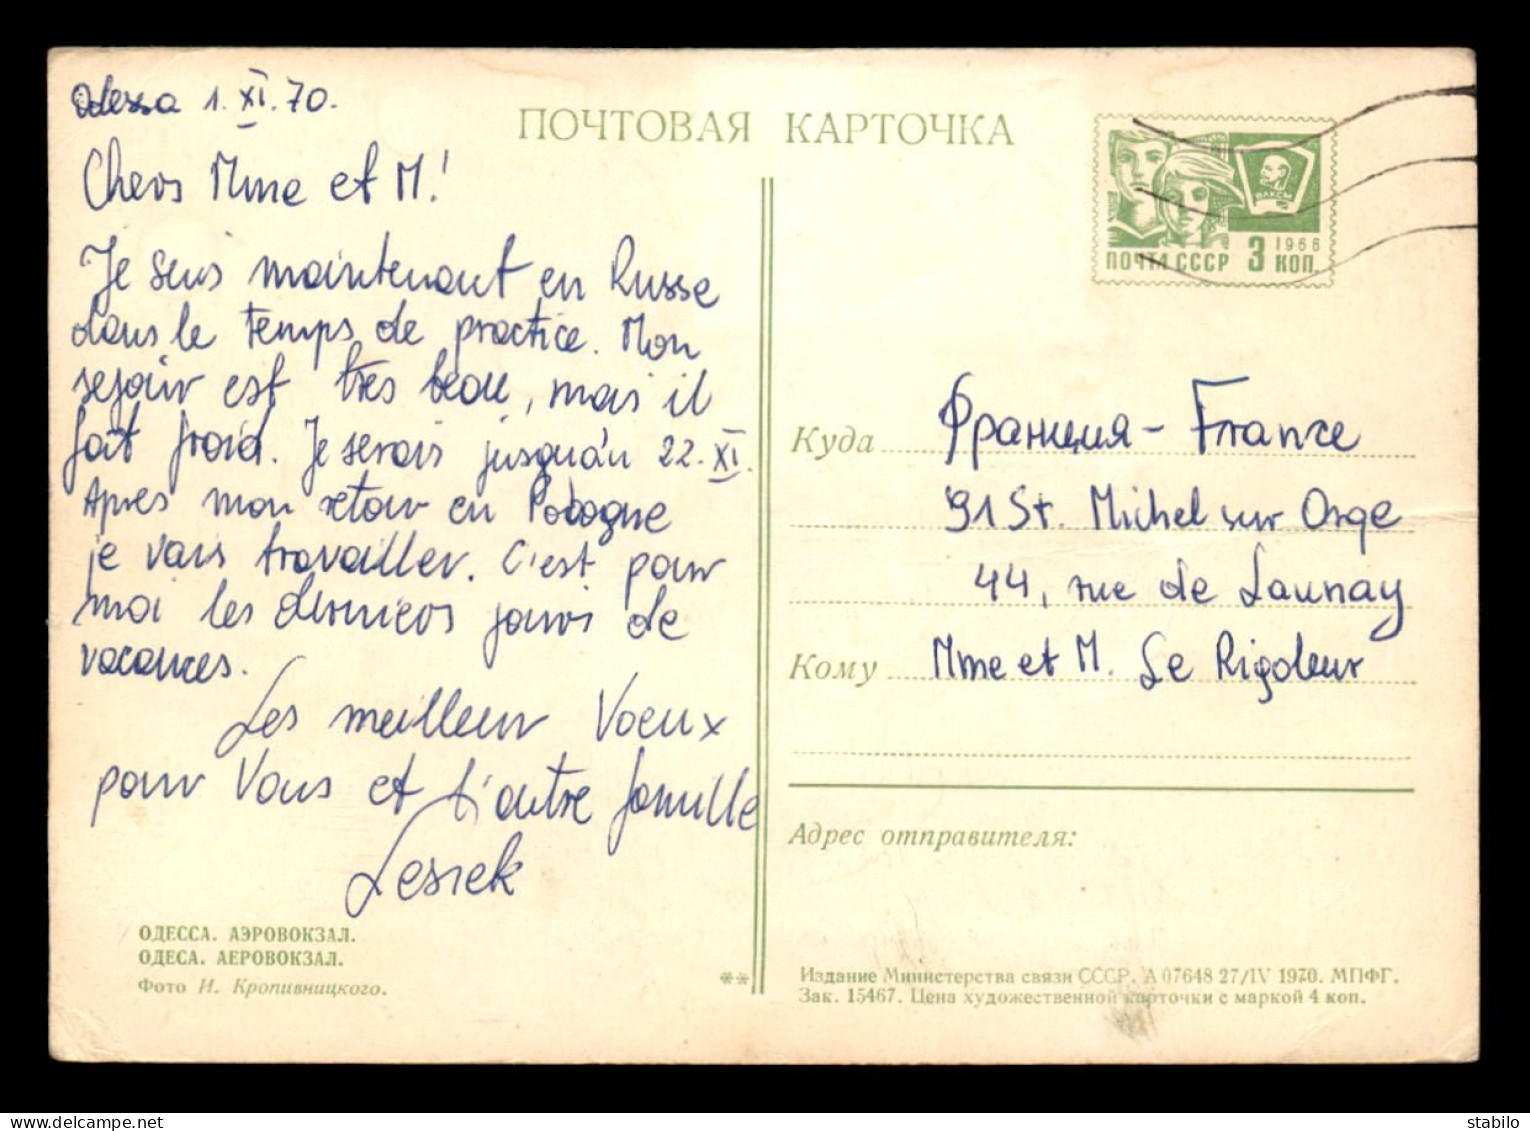 Odessa 1. XI. 70.
Chers Mme et M!
Je suis maintenant en Russe
dans le temps de practice. Mon
sejour est très beau, mais il
fait froid. Je serais jusqu'à'u 22. XI.
Après mon retour en Pologne
je vais travailler. C'est pour
moi les derniers jours de
vacances.
Les meilleur Voeux
pour Vous et l'autre famille
Leszek
ОДЕССА. АЭРОВОКЗАЛ.
ОДЕСА. АЕРОВОКЗАЛ.
Фото И. Кропивницкого.
**
ПОЧТОВАЯ КАРТОЧКА
ВЛКСМ
1966
ПОЧТА СССР 3 КОП.
Куда Франция - France
91 St. Michel sur Orge
44, rue de Launay
Кому Mme et M. Le Rigoleur
Адрес отправителя:
Издание Министерства связи СССР. А 07648 27/IV 1970. МПФГ.
Зак. 15467. Цена художественной карточки с маркой 4 коп.
www.delcampe.net
starlibo